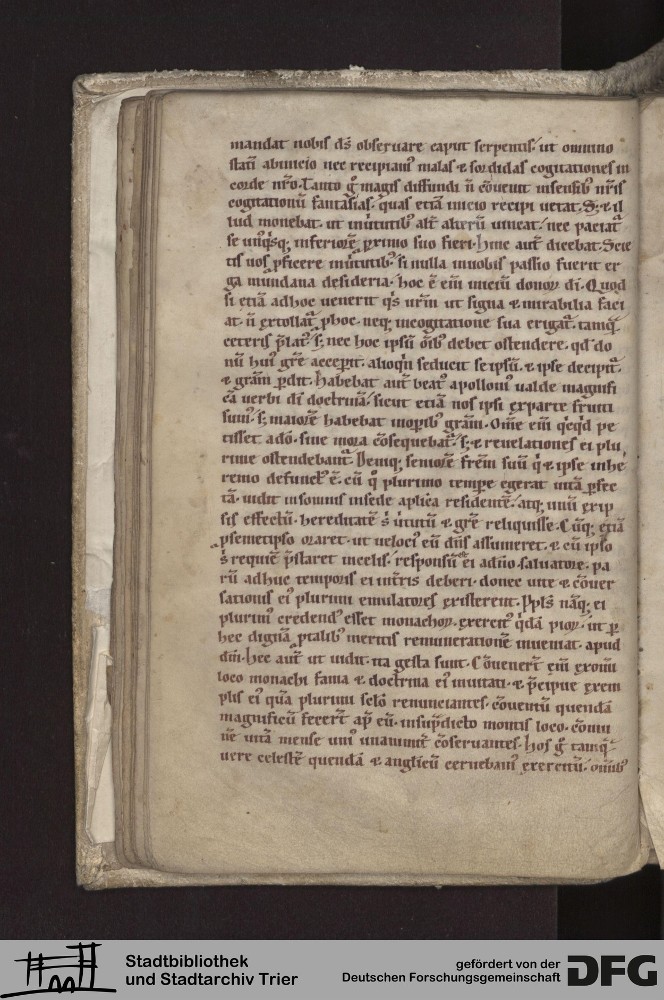 mandat nobis ds̄ obseruare caput serpentis. ut omnino
statī abiniecio nec recipiam᷒ malas & sordidas cogitationes in
corde nr̄o. Tanto g̊ magis diffundi n̄ cōuenit insensib᷒ nr̄is
cogitationū fantasias. quas etiā inicio recipi uetat. S; & il
lud monebat. ut inuirtutib᷒ alt̄ alterū uincat. nec paciat᷑
se unq̇sq; inferiorē proximo suo fieri. Hinc aut̄ dicebat. Scie
tis uos ꝓficere inuirtutib᷒. si nulla inuobis passio fuerit er
ga mundana desideria. hoc ē eni᷒ iniciū donoꝝ di̅. Quod
si etiā adhoc uenerit q̇s ur̄m ut signa & mirabilia faci
at. n̄ extollat᷑ ꝓhoc. neq; incogitatione sua erigat᷑. tamq̄
ceteris p̄lat᷒. s; nec hoc ipsū oīb᷒ debet ostendere. qd̄ do
nū hui᷒ gr̄e acceꝑit. alioq̇n seducit se ipsū. & ipse decipit᷑.
& gr̄am ꝑdit. Habebat aut̄ beat᷒ apolloni᷒ ualde magnifi
cā uerbi di̅ doctrinā. sicut etiā nos ipsi exparte fruiti
sum᷒. s; maiorē habebat inoꝑib᷒ gr̄am. Om̄e eni᷒ q̇cq̇d pe
tisset adō. sine mora cōsequebat᷑. s; & reuelationes ei plu
rime ostendebant᷑. Deniq; seniorē fr̄em suū q̇ & ipse inhe
remo defunct᷒ ē. cū q̊ plurimo tempe egerat uitā ꝑfec
tā. uidit insomnis insede aplīca residentē. atq; unū exip
sis effectū. hereditatē s̄ uirtutū & gr̄e reliquisse. Cūq; etiā
ꝓsemetipso oraret. ut uelocī eū dn̄s assumeret. & cū ipso
s̄ requiē p̄staret incelis. responsū ei adn̄o saluatore. pa
rū adhuc temporis ei inter̄is deberi. donec uite & cōuer
sationis ei᷒ plurimi emulatores existerent. Ppl̄s nāq; ei
plurim᷒ credend᷒ esset monachoꝝ. exercit᷒ q̇dā pioꝝ. ut ꝑ
hec dignā ꝓtalib᷒ meritis remuneratione inueniat. apud
dm̄. Hec aut̄ ut uidit. ita gesta sunt. Cōuenert̄ eni᷒ exomi
loco monachi fama & doctrina ei᷒ inuitati. & p̄cipue exem
plis ei᷒ q̄a plurimi sclō renunciantes. cōuentū quendā
magnificū fecert̄ ap̄ eū. insup̄dicto montis loco. cōmu
nē uitā mense uni᷒ unanimit̄ cōseruantes. Hos g̊ tamq̄
uere celestē quendā & anglicū cernebam᷒ exercitū. omīb᷒
Stadtbibliothek
und Stadtarchiv Trier
gefördert von der
Deutschen Forschungsgemeinschaft
DFG